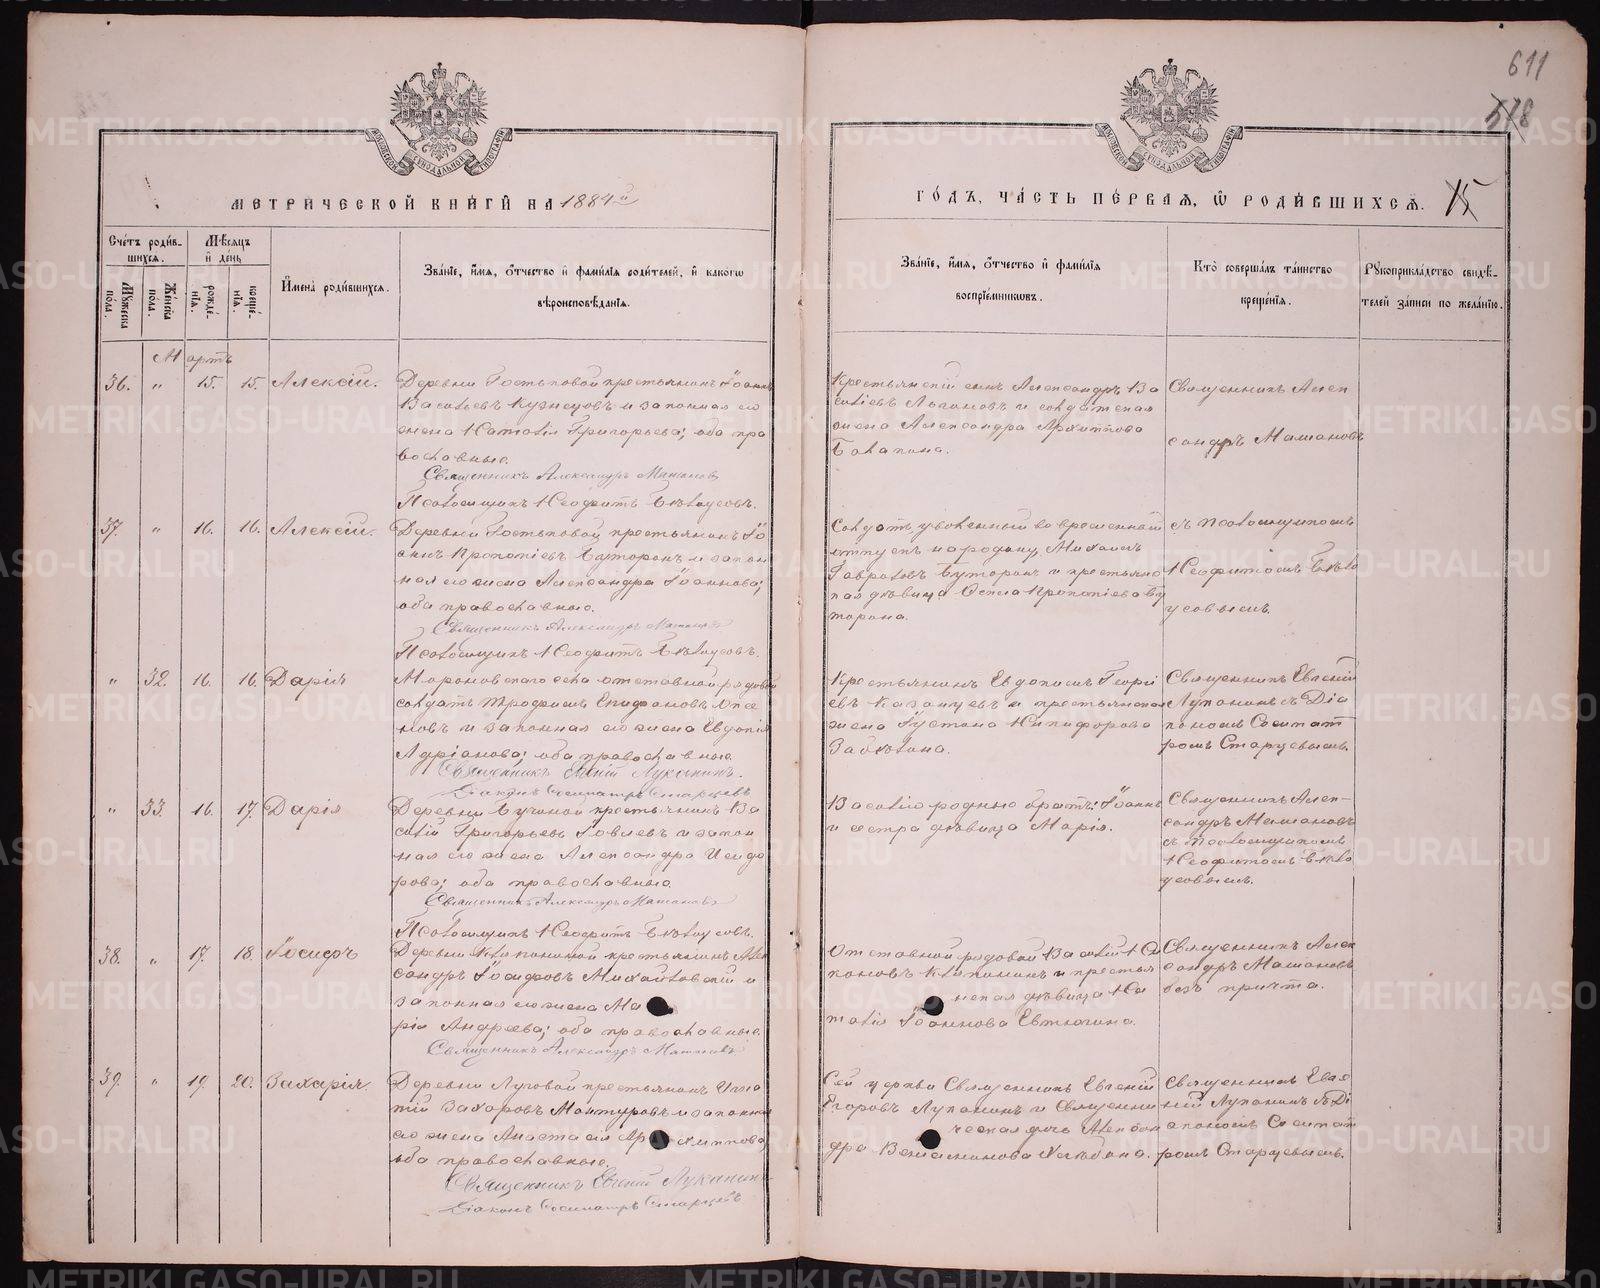 611
578
МОСКОВСКОЙ СѴНОДАЛЬНОЙ ТИПОГРАФІИ
МОСКОВСКОЙ СѴНОДАЛЬНОЙ ТИПОГРАФІИ
МЕТРИЧЕСКОЙ КНИГИ НА 1884й
ГОДЪ, ЧАСТЬ ПЕРВАѦ, Ѡ РОДИВШИХСѦ. 15
Счетъ родив-
шихсѧ.
Мѣсѧцъ
и день
Мꙋжеска пола.
Женска пола.
рожде-нїѧ.
креще-нїѧ.
Имена родившихсѧ.
Званїе, имѧ, отчество и фамилїѧ родителей, и какогѡ
вѣроисповѣданїѧ.
Званїе, имѧ, отчество и фамилїѧ
воспрїемникѡвъ.
Кто совершалъ таинство
крещенїѧ.
Рꙋкоприкладство свидѣ-
телей записи по желанїю.
Мартъ
36. " 15. 15. Алексій.
Деревни Гостьковой крестьянинъ Іоаннъ
Васильевъ Кузнецовъ и законная его
жена Наталія Григорьева; оба пра
вославные.
Священникъ Александръ Мамановъ
Псаломщикъ Неофитъ Бѣлоусовъ.
Крестьянскій сынъ Александръ Ва
сильевъ и солдатская
жена Александра Архиппова
Священникъ Алек
сандръ Мамановъ
37. " 16. 16. Алексій.
Деревни Гостьковой крестьянинъ Іо
аннъ Прокопіевъ Буторинъ и закон
ная его жена Александра Іоаннова;
оба православные.
Священникъ Александръ Мамановъ
Псаломщикъ Неофитъ Бѣлоусовъ.
Солдатъ, уволенный во временный
отпускъ на родину, Михаилъ
Гавриловъ Буторинъ и крестьянс
кая дѣвица Прокопіева Бу
торина.
съ Псаломщикомъ
Неофитомъ Бѣло
усовымъ.
" 32. 16. 16. Дарія
села отставной рядовой
солдатъ Трофимъ Епифановъ
новъ и законная его жена Евдокія
Адріанова; оба православные
Священникъ Евгеній Лукинъ.
Діаконъ Сосипатръ Старцевъ
Крестьянинъ Евдокимъ Георгі
евъ Казанцевъ и крестьянская
жена Іустина Никифорова
Заблотина.
Священникъ Евгеній
съ Діа
кономъ Сосипат
ромъ Старцевымъ.
" 33. 16. 17. Дарія
Деревни крестьянинъ Ва
силій Григорьевъ и закон
ная его жена Александра Исидо
рова; оба православные
Священникъ Александръ Мамановъ
Псаломщикъ Неофитъ Бѣлоусовъ.
Василію родные братъ: Іоаннъ
и сестра дѣвица Марія.
Священникъ Алек-
сандръ Мамановъ
съ Псаломщикомъ
Неофитомъ Бѣло
усовымъ.
38. " 17. 18. Іосифъ
Деревни крестьянинъ Алек
сандръ Іосифовъ Михайловскій и
законная его жена Ма
рія Андреева; оба православные.
Священникъ Александръ Мамановъ
Отставной рядовой Василій
и крестья
нская дѣвица На
талія Іоаннова Евтюгина.
Священникъ Алек
сандръ Мамановъ
безъ причта.
39. " 19. 20. Захарія.
Деревни Луговой крестьянинъ Игна
тій Захаровъ Мантуровъ и законная
его жена Анастасія Архиппова,
оба православные.
Священникъ Евгеній
Діаконъ Сосипатръ Старцевъ
Сей церкви Священникъ Евгеній
Егоровъ и Священни
ческая дочь Александ
ра Веніаминова
Священникъ Евге
ній съ Ді
акономъ Сосипат
ромъ Старцевымъ.
METRIKI.GASO-URAL.RU